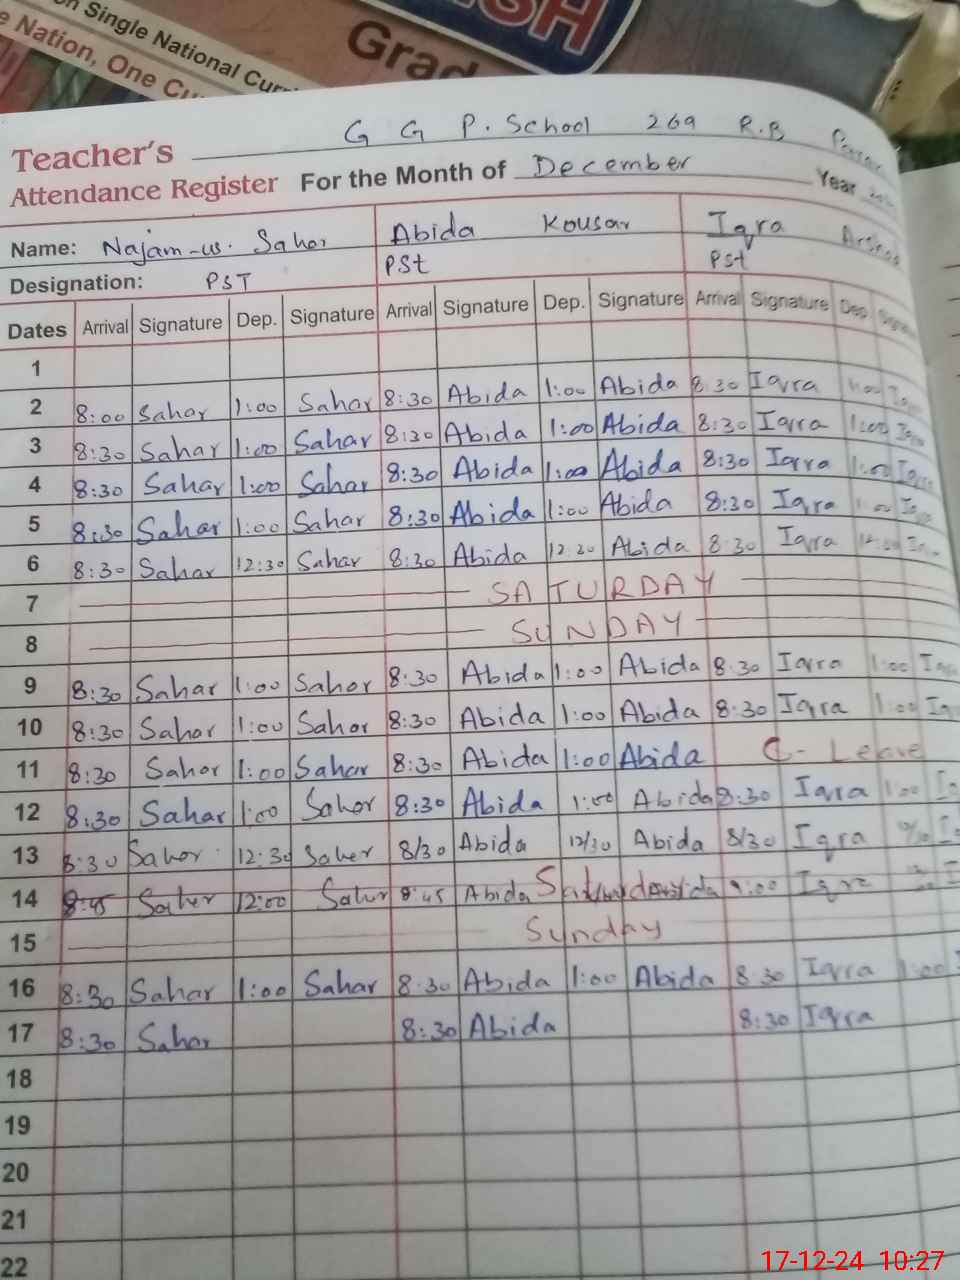 on Single National Curri
e Nation, One Cu
SH
Grad
G G P. School 269 R.B
Teacher's
Attendance Register For the Month of December Year
Name: Najam-us. Sahar Abida Kousar Iqra Arshad
Designation: PST PSt PSt
Dates Arrival Signature Dep. Signature Arrival Signature Dep. Signature Arrival Signature Dep. Signature
1
2 8:00 Sahar 1:00 Sahar 8:30 Abida 1:00 Abida 8:30 Iqra 1:00 Iqra
3 8:30 Sahar 1:00 Sahar 8:30 Abida 1:00 Abida 8:30 Iqra 1:00 Iqra
4 8:30 Sahar 1:00 Sahar 8:30 Abida 1:00 Abida 8:30 Iqra 1:00 Iqra
5 8:30 Sahar 1:00 Sahar 8:30 Abida 1:00 Abida 8:30 Iqra 1:00 Iqra
6 8:30 Sahar 12:30 Sahar 8:30 Abida 12:30 Abida 8:30 Iqra
7 SATURDAY
8 SUNDAY
9 8:30 Sahar 1:00 Sahar 8:30 Abida 1:00 Abida 8:30 Iqra 1:00 Iqra
10 8:30 Sahar 1:00 Sahar 8:30 Abida 1:00 Abida 8:30 Iqra 1:00 Iq
11 8:30 Sahar 1:00 Sahar 8:30 Abida 1:00 Abida C- Leave
12 8:30 Sahar 1:00 Sahar 8:30 Abida 1:00 Abida 8:30 Iqra 1:00 I
13 8:30 Sahar 12:30 Saher 8/30 Abida 12/30 Abida 8/30 Iqra I
14 8:45 Saher 12:00 Sahar 8:45 Abida Saturday 9:00 Iqra I
15 Sunday
16 8:30 Sahar 1:00 Sahar 8:30 Abida 1:00 Abida 8:30 Iqra 1:00
17 8:30 Sahar 8:30 Abida 8:30 Iqra
18
19
20
21
22
17-12-24 10:27